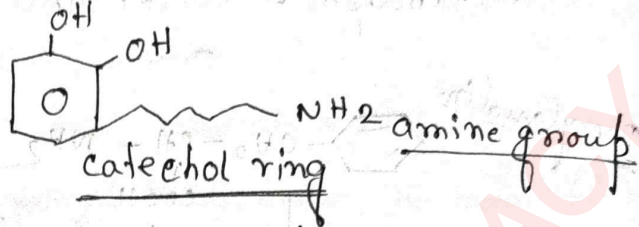 OH
OH
NH2 amine group
catechol ring
ACY